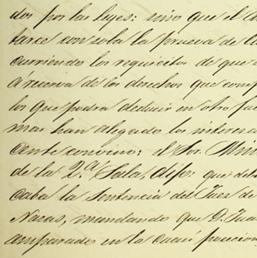 dos por las leyes: sino que el
tarse con sola la prueva de
curriendo los requicitos de que
á reserva de los derechos que comp
los que pudra deducir en otro jui
mas han alegado los interesa
cente convino: el Sr. Minis
de la 2.ª Sala, dijo: que deb
caba la Sentencia del Juez de
Nasas, mandando que D. Juan
amparado en la cuasi posecion